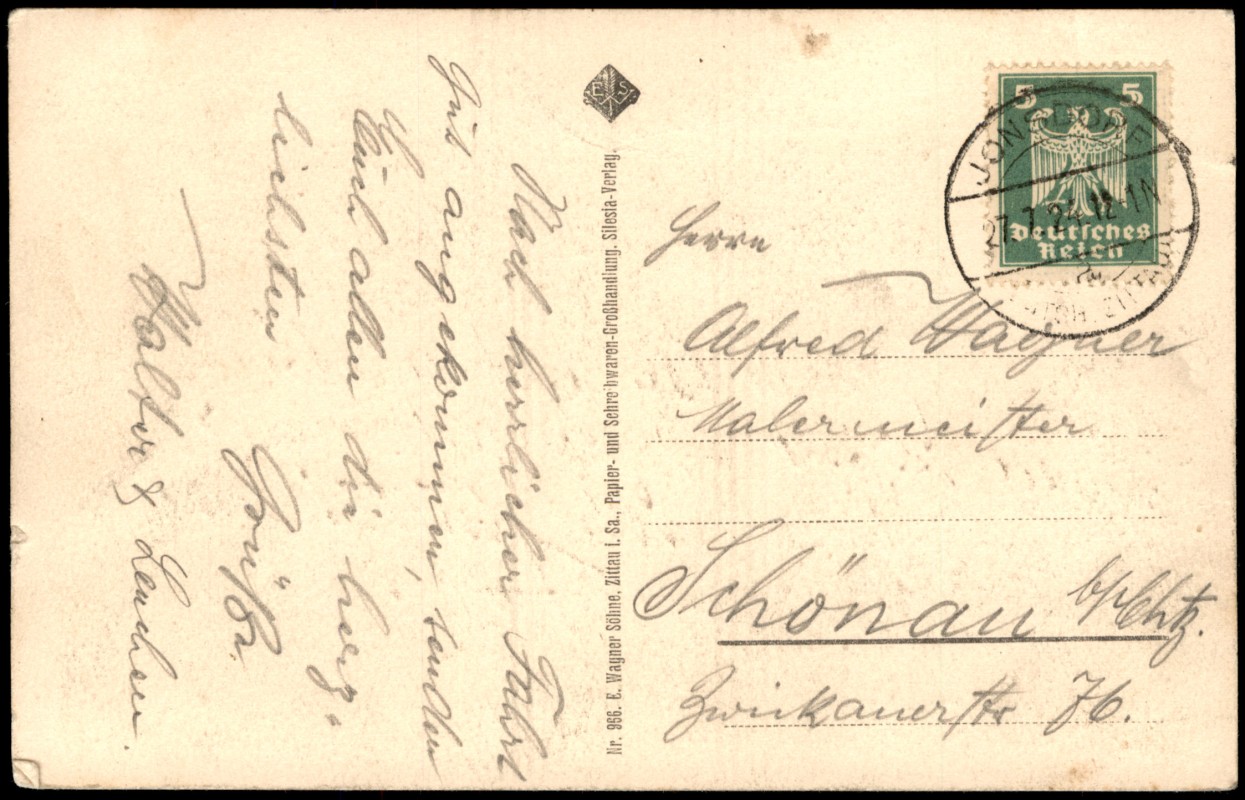 Nach herrlicher Fahrt
gut angekommen, senden
Euch allen die herz-
lichsten Grüße
Walter & Lenchen.
Nr. 966. E. Wagner Söhne, Zittau i. Sa., Papier- und Schreibwaren-Großhandlung. Silesia-Verlag.
E S
5 5
Deutsches
Reich
JONSDORF
27.7.24.12-1N
Herrn
Alfred Wagner
Malermeister
Schönau b/Chtz.
Zwickauerstr 76.